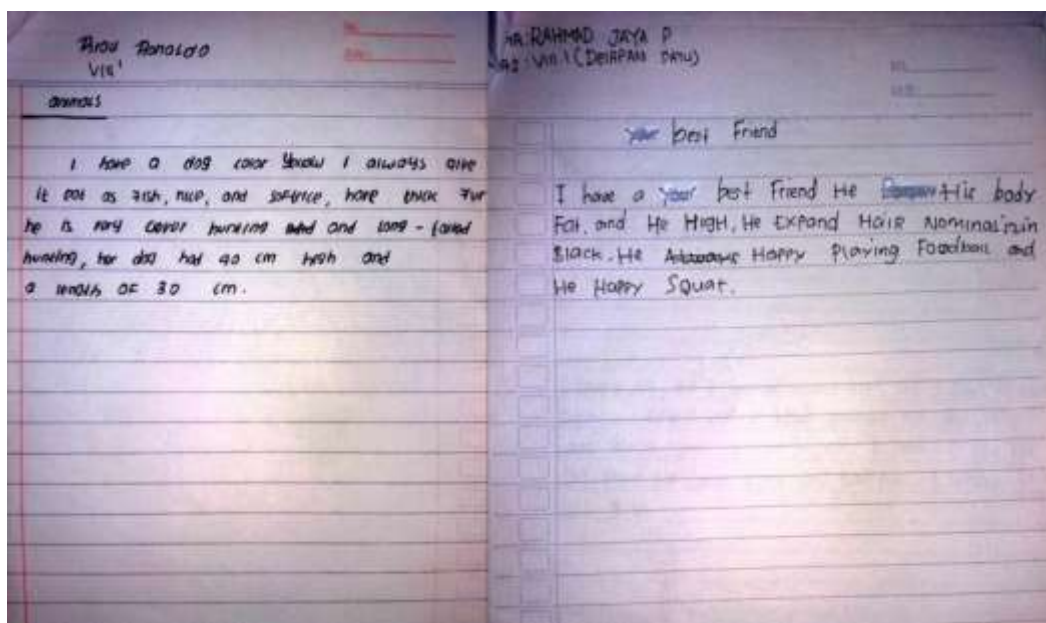 Ronaldo
VIII
animals
I have a dog color I always give
it eat as fish, rice, and have thick fur
he is very hunting and long - faced
hunting, her dog had 40 cm high and
a length OF 30 cm.
NA: RAHMAD JAYA P
VIII.1 (DELAPAN SATU)
your best Friend
I have a your best Friend He His body
Fat, and He HIGH, He EXPand HaiR Nominal
Black. He Happy Playing Foodball and
He Happy Squat.